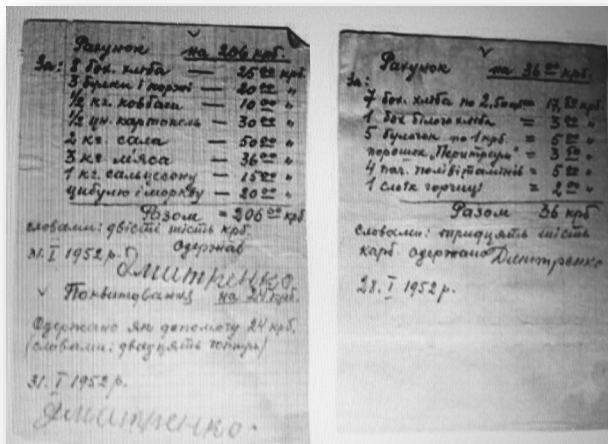 Рахунок на 206 крб.
За: 8 бох. хліба — 25 00 крб
3 булки і коржі — 20 00 "
1/2 кг. ковбаси — 10 00 "
1/2 цн. картопель — 30 00 "
2 кг. сала — 50 00 "
3 кг м'яса — 36 00 "
1 кг. сальцесону — 15 00 "
цибулю і моркву — 20 00 "
Разом = 206 00 крб
словами: двісті шість крб.
одержав
31. I 1952 р. Дмитренко
Поквитування на 24 крб.
Одержано як допомогу 24 крб.
(словами: двадцять чотири)
31. I 1952 р.
Дмитренко
Рахунок на 36 00 крб.
За:
7 бох. хліба по 2,50 = 17,50 крб
1 бох білого хліба = 3 00 "
5 булочок по 1 крб. = 5 00 "
порошок = 3 50 "
4 пач. полівітамінів = 5 00 "
1 слоїк горчиці = 2 00 "
Разом 36 крб
словами: тридцять шість
карб. одержано Дмитренко
28. I 1952 р.